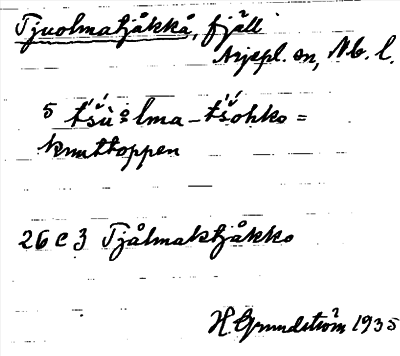 Tjuolmatjåkkå, fjäll
Arjepl. sn, Nb. l.
5 tśŭ̀ölma-tśŏhko =
knuttoppen
26 C 3 Tjålmaktjåkko
H. Grundström 1935